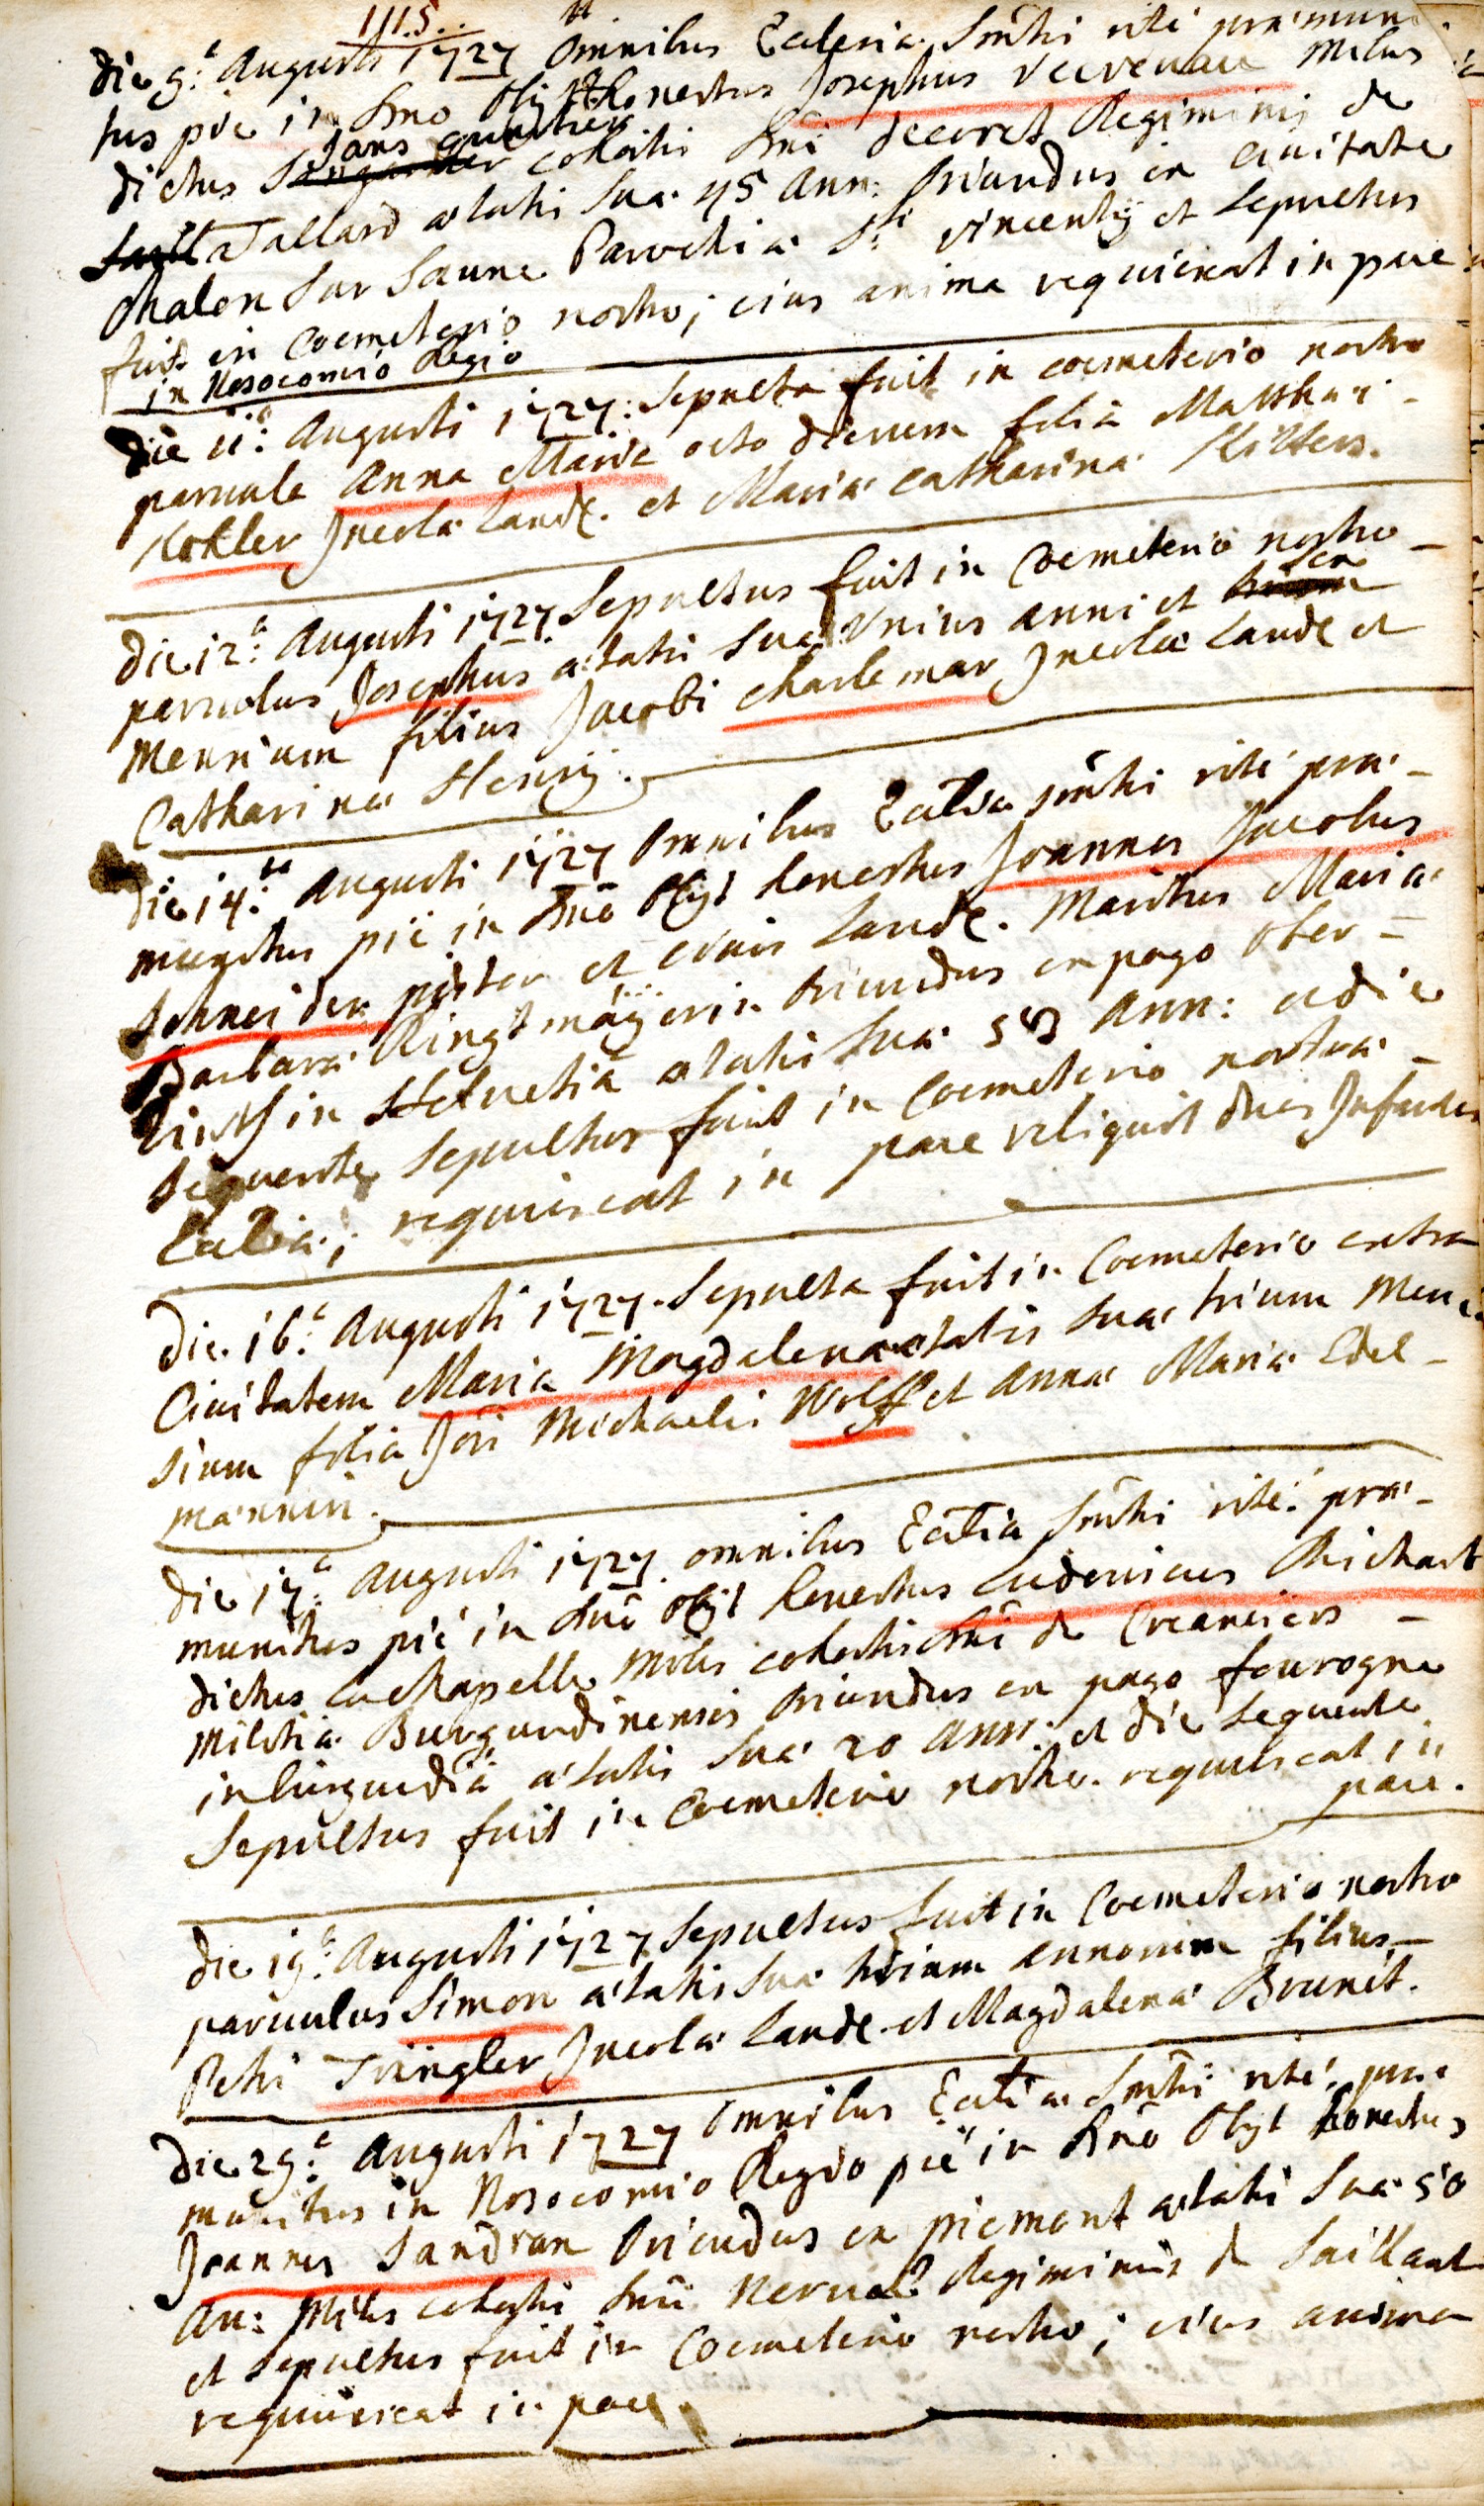 111.5.
die 9.a Augusti 1727 omnibus Ecclesiæ Smtis rité præmuni
tus pie in Dno obijt Honestus Josephus miles
dictus Sans quartier cohortis Dni Regiminis de
Tallard ætatis suæ 45 Ann: oriundus in civitate
Chalon sur Saune Parochiæ Sti vincentij et sepultus
fuit in Coemeterio nostro; eius anima requiescat in pace
in Nosocomio Regio
die 11.a Augusti 1727. Sepulta fuit in coemeterio nostro
parvula Anna Maria octo dierum filia Matthæi
Kohler Incolæ Land. et Mariæ Catharinæ
die 12.a Augusti 1727 Sepultus fuit in Coemeterio nostro
parvulus Josephus ætatis suæ Unius anni et sex
Mensium filius Jacobi Charlemar Incolæ Land. et
Catharinæ Henrij.
die 14.ta Augusti 1727 omnibus Ecclæ smtis rité præ-
munitus pié in Dno obijt honestus Joannes Jacobus
Schneider pistor et civis Land. Maritus Mariæ
Barbaræ oriundus en pago ober-
in Helvetia ætatis suæ Ann: et die
sequente sepultus fuit in Coemeterio nostræ
Ecclæ; requiescat in pace reliquit duas Infantes
Die 16.a Augusti 1727. Sepulta fuit in Coemeterio extra
Civitatem Maria Magdalena ætatis suæ trium Men-
sium filia Jois Michaelis Wolff et Annæ Mariæ Edel-
mannin.
die 17.a Augusti 1727 omnibus Ecctiæ Smtis rité præ-
munitus pié in Dno obijt honestus Ludovicus Richart
dictus Lachapelle miles cohortis Dni de Creancier
Militiæ Burgundinensis oriundus en pago fourogne
in burgundiâ ætatis suæ 20 ann: et die sequente
Sepultus fuit in Coemeterio nostro. requiescat in
pace.
die 19.a Augusti 1727 Sepultus fuit in Coemeterio nostro
parvulus Simon ætatis suæ trium annorum filius
Petri Tringler Incolæ Land. et Magdalenæ Brunet.
die 29.a Augusti 1727 omnibus Ecctiæ Smtis rité præ
munitus in Nosocomio Regio pié in Dno obijt honestus
Joannes Sandran oriundus en piemont ætatis suæ 50
An: Miles cohortis Dni Regiminis de Saillant
et sepultus fuit in Coemeterio nostro; eius anima
requiescat in pace.